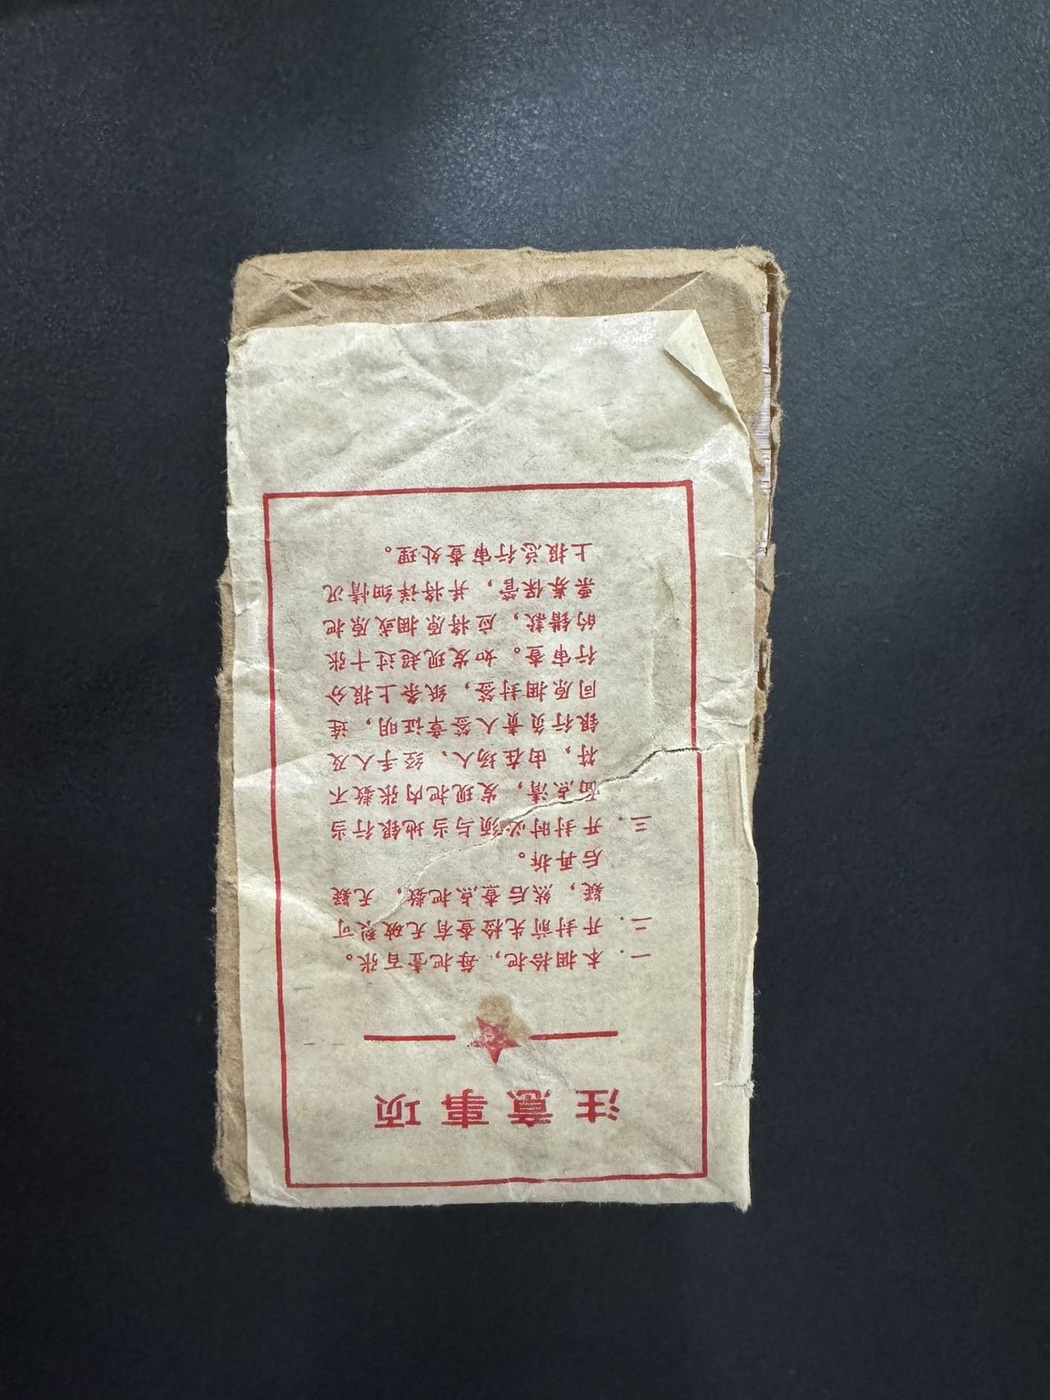 注意事项
一．本捆拾把，每把壹百张。
二．开封前先检查有无破裂可
疑，然后查点把数，无疑
后再拆。
三．开封时必须与当地银行当
面点清，发现把内张数不
符，由在场人、经手人及
银行负责人签章证明，连
同原捆封签，纸条上报分
行审查。如发现超过十张
的错款，应将原捆或原把
票券保管，并将详细情况
上报总行审查处理。